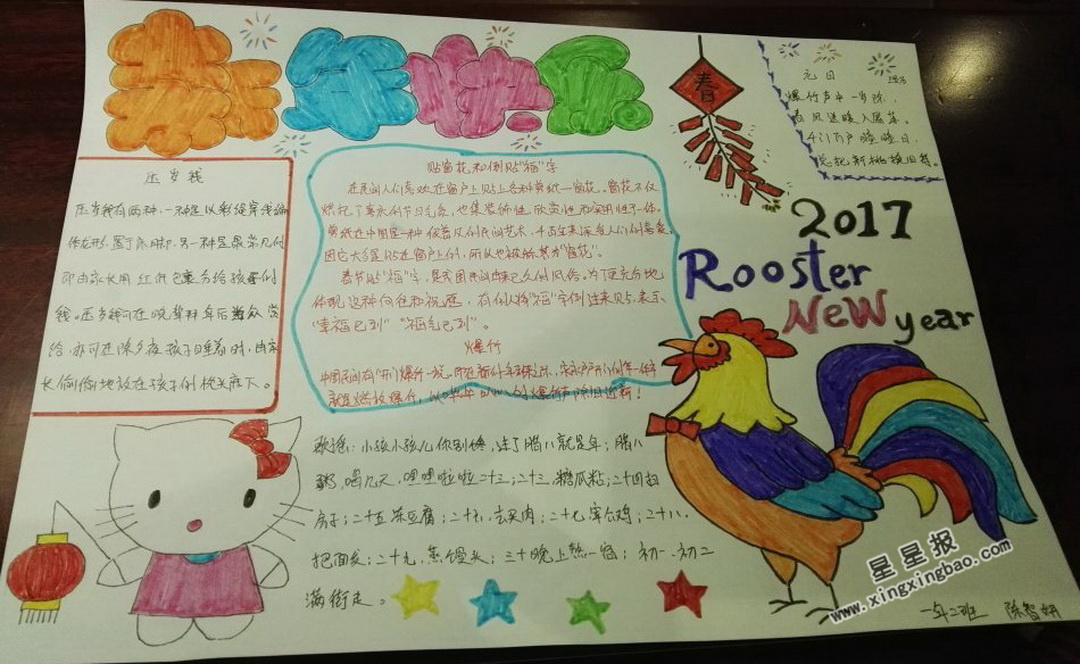 新年快乐
春
元日
王安石
爆竹声中一岁除,
春风送暖入屠苏。
千门万户曈曈日,
总把新桃换旧符。
压岁钱
压岁钱有两种,一种是以彩绳穿线编
作龙形,置于床脚,另一种是最常见的
即由家长用红纸包裹分给孩子的
钱。压岁钱可在晚辈拜年后当众赏
给,亦可在除夕夜孩子睡着时,由家
长偷偷地放在孩子的枕头底下。
贴窗花和倒贴"福"字
在民间人们喜欢在窗户上贴上各种剪纸—窗花。窗花不仅
烘托了喜庆的节日气氛,也集装饰性、欣赏性和实用性于一体。
剪纸在中国是一种很普及的民间艺术,千百年来深受人们的喜爱,
因它大多是贴在窗户上的,所以也被称其为"窗花"。
春节贴"福"字,是我国民间由来已久的风俗。为了更充分地
体现这种向往和祝愿,有的人将"福"字倒过来贴,表示
"幸福已到""福气已到"。
爆竹
中国民间有"开门爆竹"一说。即在新的一年到来之际,家家户户开门的第一件事
就是燃放爆竹,以哔哔叭叭的爆竹声除旧迎新!
2017
Rooster
New year
歌谣:小孩小孩儿你别馋,过了腊八就是年;腊八
粥,喝几天,哩哩啦啦二十三;二十三,糖瓜粘;二十四扫
房子;二十五冻豆腐;二十六,去买肉;二十七宰公鸡;二十八.
把面发;二十九,蒸馒头;三十晚上熬一宿;初一、初二
满街走。
星星报
www.xingxingbao.com
一年二班 陈智妍